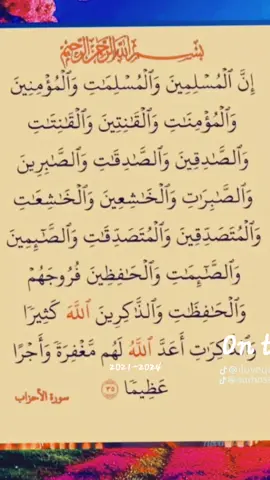 بِسْمِ اللَّهِ الرَّحْمَٰنِ الرَّحِيمِ
إِنَّ ٱلْمُسْلِمِينَ وَٱلْمُسْلِمَٰتِ وَٱلْمُؤْمِنِينَ
وَٱلْمُؤْمِنَٰتِ وَٱلْقَٰنِتِينَ وَٱلْقَٰنِتَٰتِ
وَٱلصَّٰدِقِينَ وَٱلصَّٰدِقَٰتِ وَٱلصَّٰبِرِينَ
وَٱلصَّٰبِرَٰتِ وَٱلْخَٰشِعِينَ وَٱلْخَٰشِعَٰتِ
وَٱلْمُتَصَدِّقِينَ وَٱلْمُتَصَدِّقَٰتِ وَٱلصَّٰٓئِمِينَ
وَٱلصَّٰٓئِمَٰتِ وَٱلْحَٰفِظِينَ فُرُوجَهُمْ
وَٱلْحَٰفِظَٰتِ وَٱلذَّٰكِرِينَ ٱللَّهَ كَثِيرًا
وَٱلذَّٰكِرَٰتِ أَعَدَّ ٱللَّهُ لَهُم مَّغْفِرَةً وَأَجْرًا
On t
2021-2024
عَظِيمًا ٣٥
سورة الأحزاب